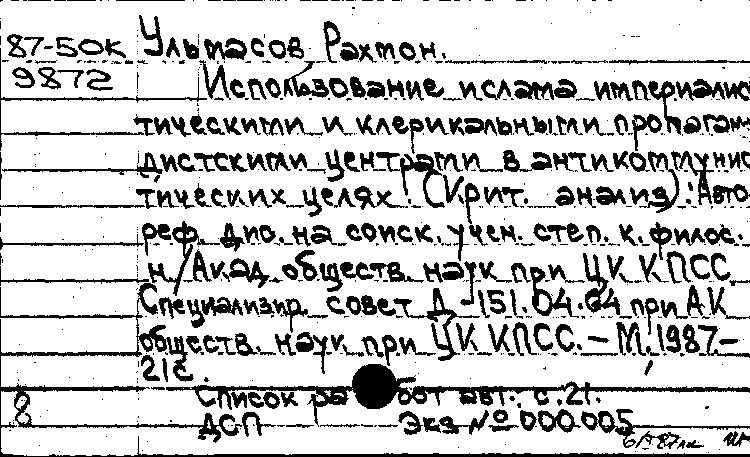 87-50к Ультасов Рахтон.
9872 Использование ислама империалис
тическими и клерикальными пропаган
дистскими центрами в антикоммунис
тических целях. (Крит. анализ): Авто
реф. дис. на соиск. учен. степ. к. филос.
н. / Акад. обществ. наук при ЦК КПСС
Специализир. совет Д-151.04.04 при АК
обществ. наук при ЦК КПСС. - М. 1987.-
21 с.
8 Список работ авт.: с. 21.
ДСП Экз № 000005